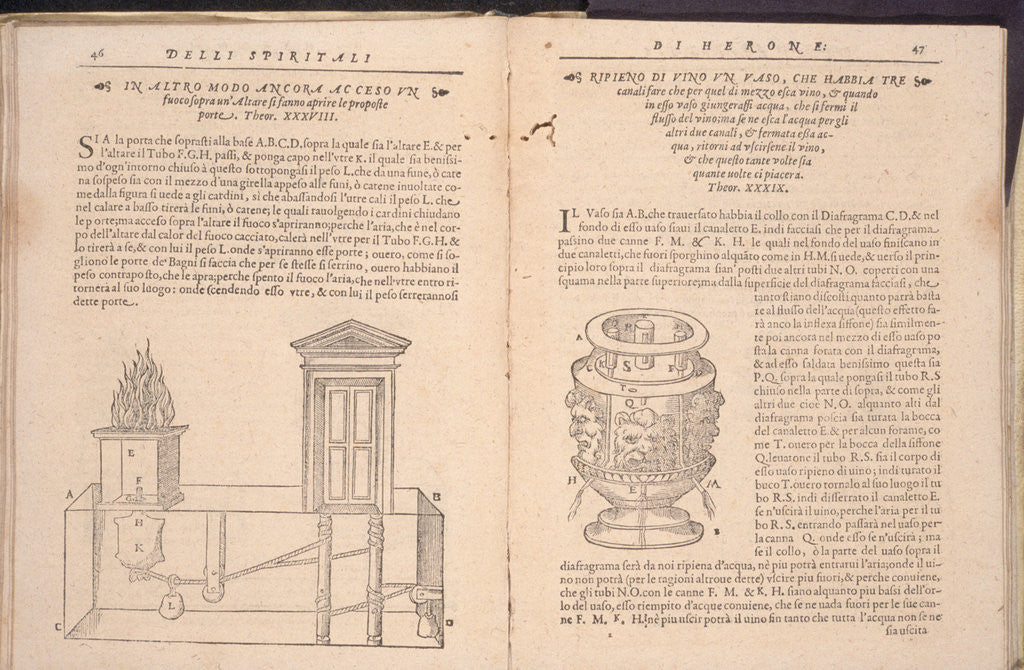 46
DELLI SPIRITALI
IN ALTRO MODO ANCORA ACCESO VN
fuoco sopra un'Altare si fanno aprire le proposte
porte. Theor. XXXVIII.
SIA la porta che soprasti alla base A.B.C.D. sopra la quale sia l'altare E. & per
l'altare il Tubo F.G.H. passi, & ponga capo nell'vtre K. il quale sia benissi-
mo d'ogn'intorno chiuso à questo sottopongasi il peso L. che da una fune, ò cate
na sospeso sia con il mezzo d'una girella appeso alle funi, ò catene inuoltate co-
me dalla figura si uede a gli cardini, sì che abassandosi l'utre cali il peso L. che
nel calare a basso tirerà le funi, ò catene; le quali rauolgendo i cardini chiudano
le porte; ma acceso sopra l'altare il fuoco s'apriranno; perche l'aria, che è nel cor-
po dell'altare dal calor del fuoco cacciato, calerà nell'vtre per il Tubo F.G.H. &
lo tirerà a se, & con lui il peso L. onde s'apriranno esse porte; ouero, come si so-
gliono le porte de' Bagni si faccia che per se stesse si serrino, ouero habbiano il
peso contraposto, che le apra; perche spento il fuoco l'aria, che nell'vtre entro ri-
tornerà al suo luogo: onde scendendo esso vtre, & con lui il peso serrerannosi
dette porte.
E
F
G
A
B
H
K
L
C
D
DI HERONE:
47
RIPIENO DI VINO VN VASO, CHE HABBIA TRE
canali fare che per quel di mezzo esca vino, & quando
in esso vaso giungerassi acqua, che si fermi il
flusso del vino; ma se ne esca l'acqua per gli
altri due canali, & fermata essa ac-
qua, ritorni ad vscirsene il vino,
& che questo tante volte sia
quante uolte ci piacera.
Theor. XXXIX.
IL Vaso sia A.B. che trauersato habbia il collo con il Diafragma C.D. & nel
fondo di esso uaso siaui il canaletto E. indi facciasi che per il diafragma
passino due canne F. M. & K. H. le quali nel fondo del uaso finiscano in
due canaletti, che fuori sporghino alquāto come in H.M. si uede, & uerso il prin-
cipio loro sopra il diafragma sian' posti due altri tubi N. O. coperti con una
squama nella parte superiore; ma dalla superficie del diafragma facciasi, che
tanto stiano discosti quanto parrà basta
re al flusso dell'acqua (questo effetto fa-
rà anco la inflexa siffone) sia similmen-
te poi ancora nel mezzo di esso uaso po
sta la canna forata con il diafragma,
& ad esso saldata benissimo questa sia
P.Q. sopra la quale pongasi il tubo R.S
chiuso nella parte di sopra, & come gli
altri due cioè N.O. alquanto alti dal
diafragma poscia sia turata la bocca
del canaletto E. & per alcun forame, co
me T. ouero per la bocca della siffone
Q. leuatone il tubo R.S. sia il corpo di
esso uaso ripieno di uino; indi turato il
buco T. ouero tornalo al suo luogo il tu
bo R.S. indi disserrato il canaletto E.
se n'uscirà il uino, perche l'aria per il tu
bo R.S. entrando passarà nel uaso per
la canna Q. onde esso se n'uscirà; ma
se il collo, ò la parte del uaso sopra il
diafragma serà da noi ripiena d'acqua, nè piu potrà entrarui l'aria; onde il ui-
no non potrà (per le ragioni altroue dette) vscire piu fuori, & perche conuiene,
che gli tubi N.O. con le canne F. M. & K. H. siano alquanto piu bassi dell'or-
lo del uaso, esso riempito d'acque conuiene, che se ne uada fuori per le sue can-
ne F. M. K. H. nè piu uscir potrà il uino fin tanto che tutta l'acqua non se ne
sia uscita
A
R
C
K
S
F
D
T
Q
H
E
M
B